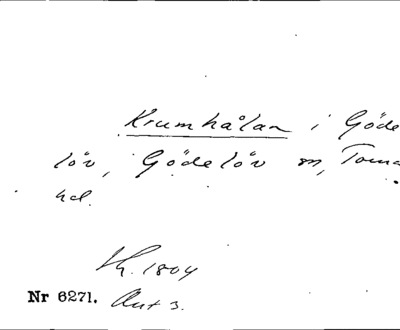 Krumhålan i Göde
löv, Gödelöv sn, Torna
hd.
Kh. 1804
Nr 6271. Ant 3.